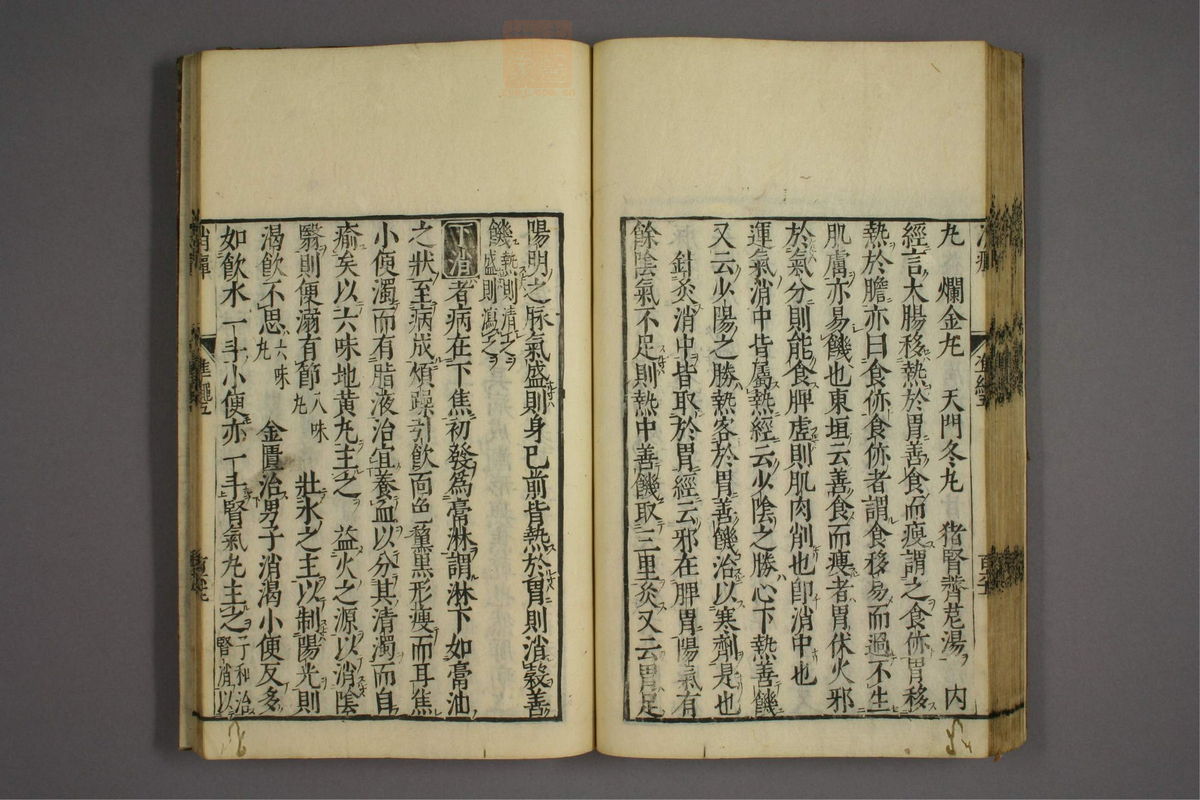 丸　爛金丸　天門冬丸　猪腎薺苨湯　内
經言大腸移熱於胃善食而瘦謂之食㑊胃移
熱於膽亦曰食㑊食㑊者謂食移易而過不生
肌膚亦易饑也東垣云善食而瘦者胃伏火邪
於氣分則能食脾虛則肌肉削也卽消中也
運氣消中皆屬熱經云少陰之勝心下熱善饑
又云少陽之勝熱客於胃善饑治以寒劑是也
針灸消中皆取於胃經云邪在脾胃陽氣有
餘陰氣不足則熱中善饑取三里灸又云胃足
陽明之脉氣盛則身已前皆熱於胃則消穀善
饑熱則清之盛則瀉之
下消者病在下焦初發爲膏淋謂淋下如膏油
之狀至病成煩躁引飲面色黧黑形瘦而耳焦
小便濁而有脂液治宜養血以分其清濁而自
瘉矣以六味地黄丸主之　益火之源以消陰
翳則便溺有節八味丸　壯水之主以制陽光則
渴飲不思六味丸　金匱治男子消渴小便反多
如飲水一斗小便亦一斗腎氣丸主之子和治腎消以
消癉
準繩五